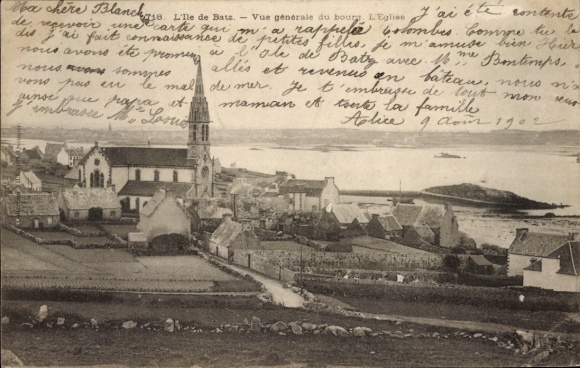 Ma chère Blanch
2718. L'Ile de Batz. — Vue générale du bourg. L'Eglise
J'ai été contente
de recevoir une carte qui m'a rappelée Colombes. Comme tu le
dis j'ai fait connaissance de petites filles. Je m'amuse bien Hier
nous avons été promener à l'Ile de Batz avec Mr. Mme Bontemps,
nous avons sommes allés et revenus en bateau, nous n'a
vons pas eu le mal de mer. Je t'embrasse de tout mon cœur
ainsi que papa et maman et toute la famille
J'embrasse Mr
Alice 9 Août 1902